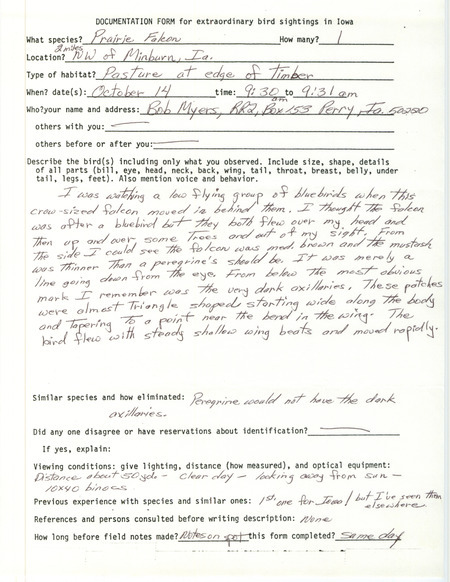 DOCUMENTATION FORM for extraordinary bird sightings in Iowa
What species? Prairie Falcon How many? 1
Location? 2 miles NW of Minburn, Ia.
Type of habitat? Pasture at edge of Timber
When? date(s): October 14 time: 9:30 am to 9:31 am
Who?your name and address: Bob Myers, RR2, Box 153 Perry, Ia. 50220
others with you:
others before or after you:
Describe the bird(s) including only what you observed. Include size, shape, details
of all parts (bill, eye, head, neck, back, wing, tail, throat, breast, belly, under
tail, legs, feet). Also mention voice and behavior.
I was watching a low flying group of bluebirds when this
crow-sized falcon moved in behind them. I thought the falcon
was after a bluebird but they both flew over my head and
then up and over some trees and out of my sight. From
the side I could see the falcon was med. brown and the mustash
was thinner than a peregrine's should be. It was merely a
line going down from the eye. From below the most obvious
mark I remember was the very dark axillaries. These patches
were almost triangle shaped starting wide along the body
and tapering to a point near the bend in the wing. The
bird flew with steady shallow wing beats and moved rapidly.
Similar species and how eliminated: Peregrine would not have the dark
axillaries.
Did any one disagree or have reservations about identification?
If yes, explain:
Viewing conditions: give lighting, distance (how measured), and optical equipment:
Distance about 50 yds - clear day - looking away from sun -
10X40 binocs
Previous experience with species and similar ones: 1st one for Iowa / but I've seen them
elsewhere
References and persons consulted before writing description: None
How long before field notes made? Notes on spot this form completed? Same day